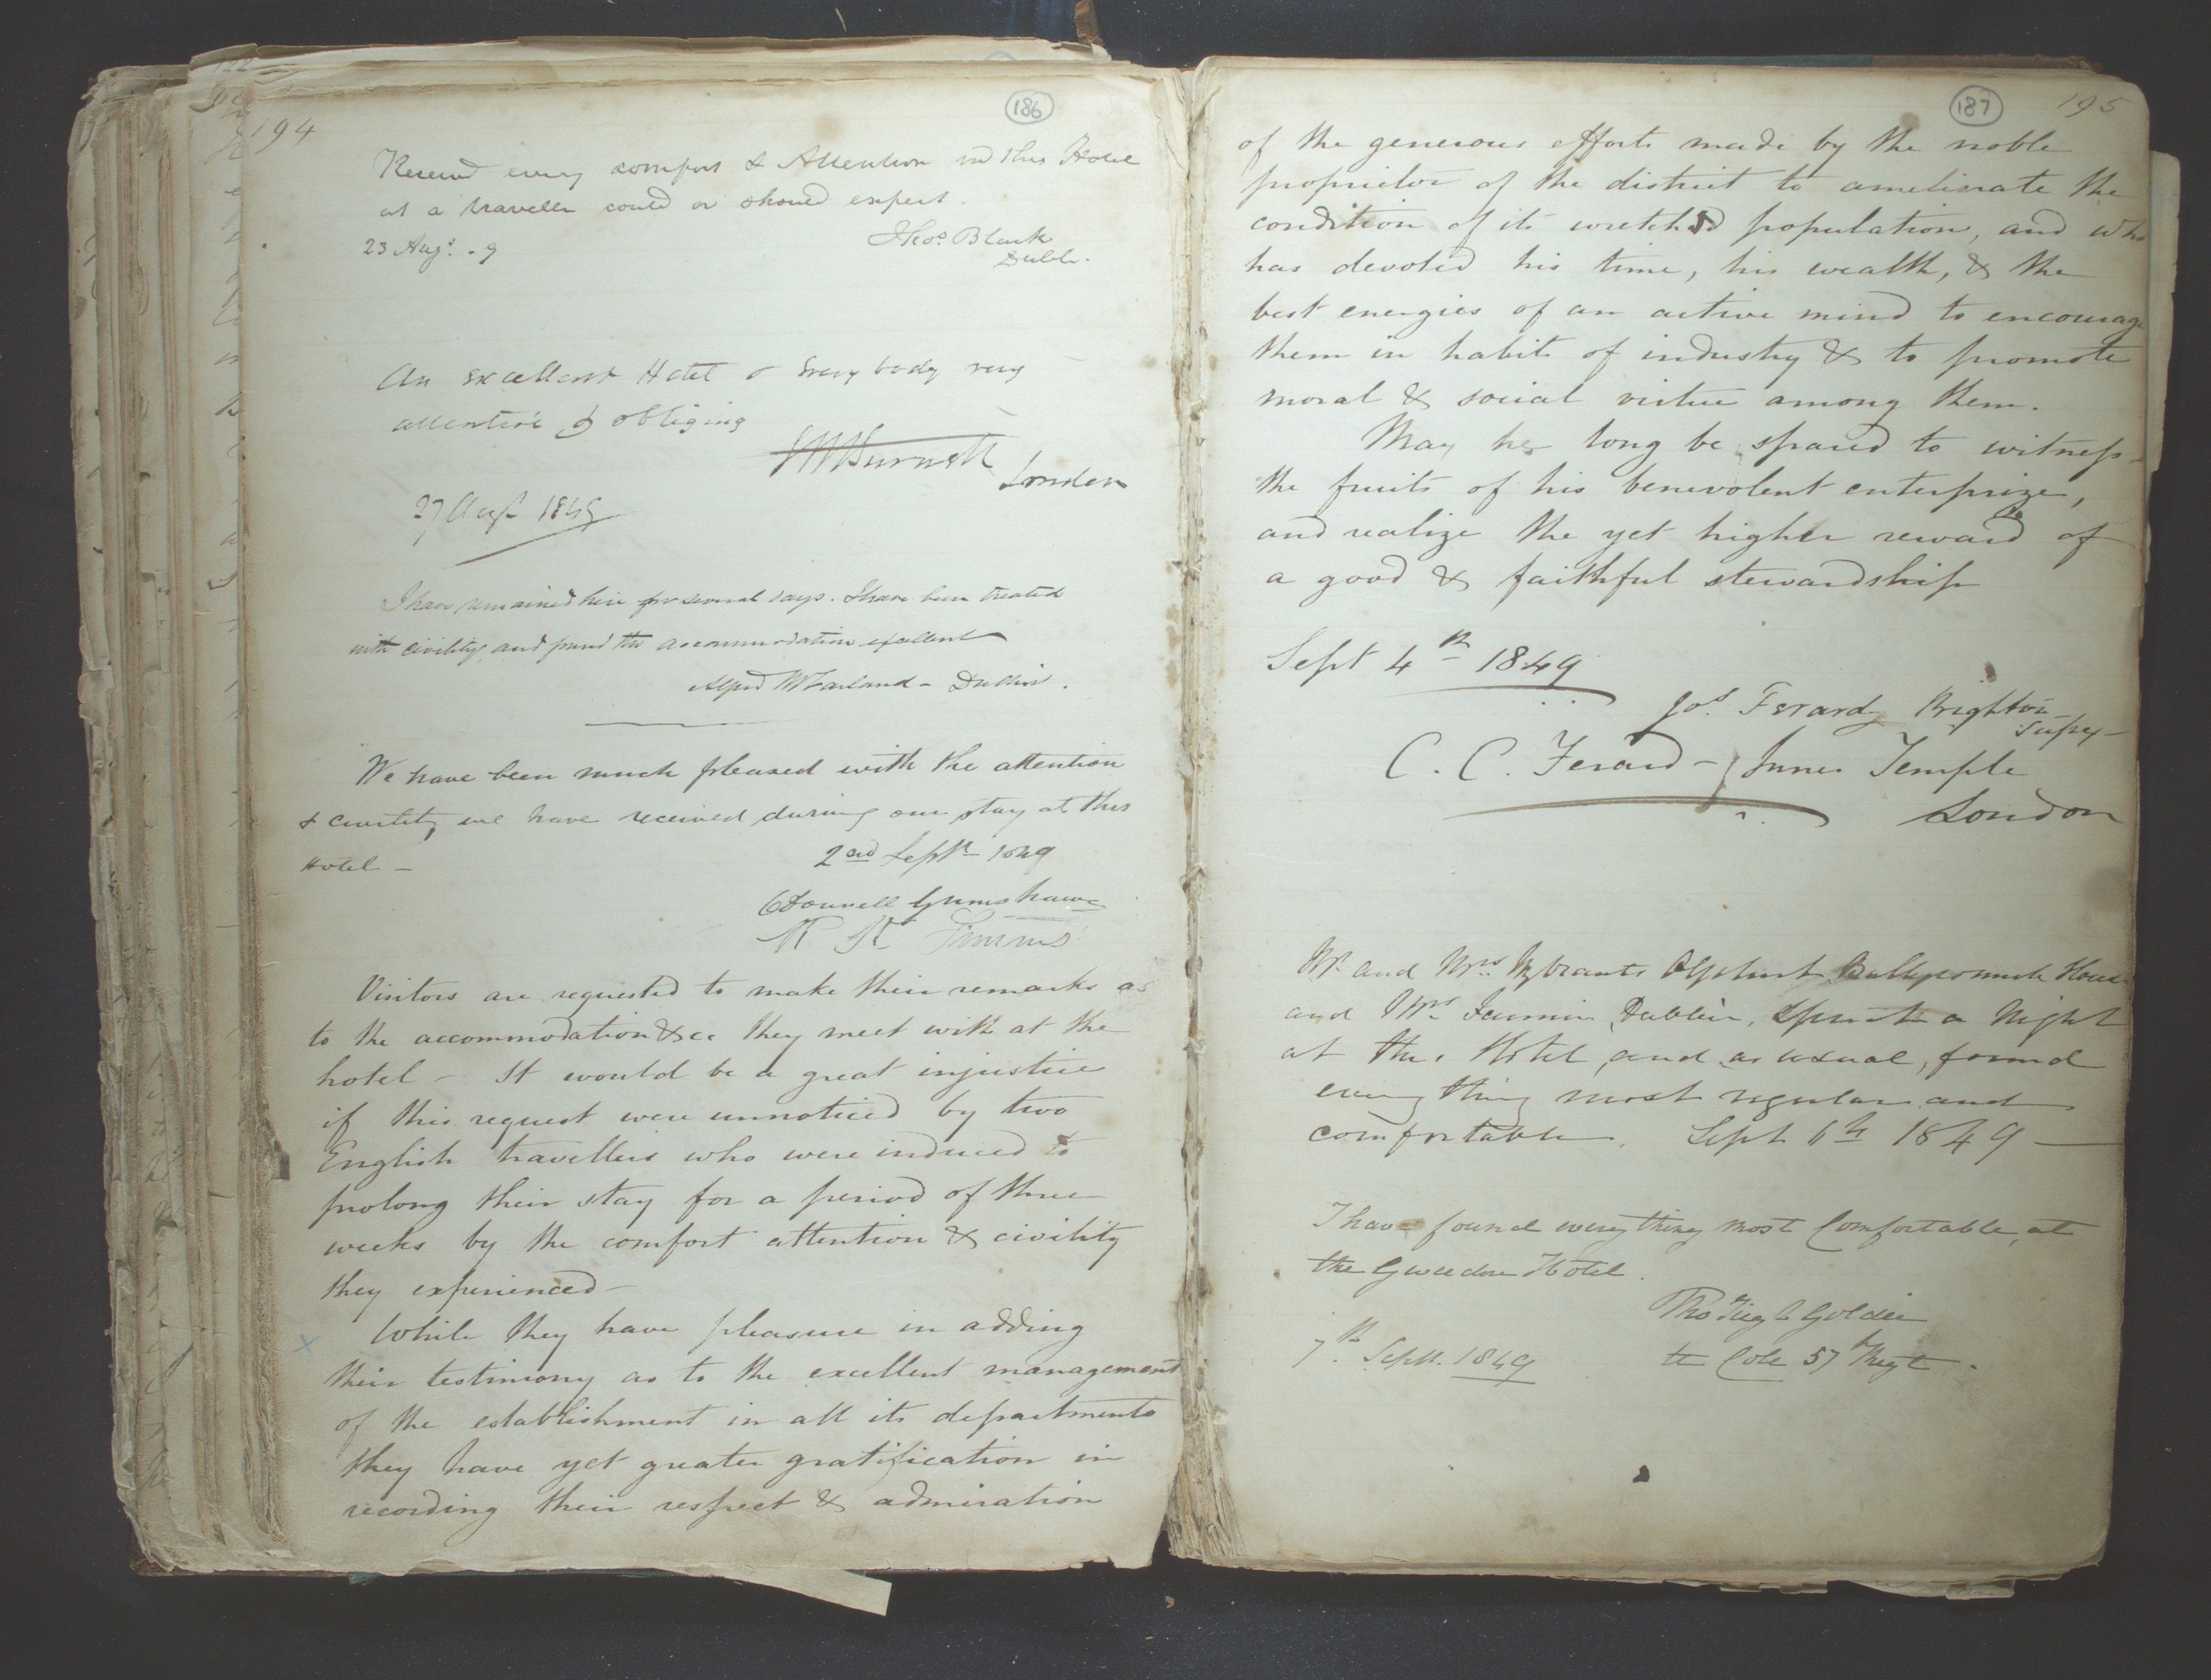 194
186
Received every comfort & Attention in this Hotel
as a traveller could or should expect.
23 Augt. -9
Thos. Black
Dubl.
An excellent Hotel & Every body very
attentive & obliging
Burnett
London
27 Augst 1849
I have remained here for several days. I have been treated
with civility, and found the accommodation excellent
Alfred McFarland - Dublin.
We have been much pleased with the attention
& civility we have received during our stay at this
Hotel -
2nd Septr 1849
O'Donnell Grimshawe
Visitors are requested to make their remarks as
to the accommodation &cc they meet with at the
hotel - It would be a great injustice
if this request were unnoticed by two
English travellers who were induced to
prolong their stay for a period of three
weeks by the comfort attention & civility
they experienced -
While they have pleasure in adding
their testimony as to the excellent management
of the establishment in all its departments
they have yet greater gratification in
recording their respect & admiration
187
195
of the generous efforts made by the noble
proprietor of the district to ameliorate the
condition of its wretched population, and who
has devoted his time, his wealth, & the
best energies of an active mind to encourage
them in habits of industry & to promote
moral & social virtue among them.
May he long be spared to witness
the fruits of his benevolent enterprize,
and realize the yet higher reward of
a good & faithful stewardship
Sept 4th 1849
Jos. Ferard Brighton
C. C. Ferard - Inner Temple
London
Mr. and Mrs. Wybrants Olphert Ballyconnell House
and Mrs. Dublin, Spent a Night
at this Hotel, and as usual, found
every thing most regular and
comfortable. Sept 6th 1849
I have found every thing most Comfortable, at
the Gweedore Hotel.
Thos Goldie
7th. Sept. 1849
Lt Col 57th Regt.